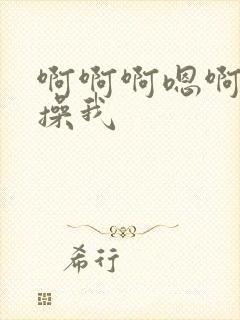 啊啊啊嗯啊
操我
希行